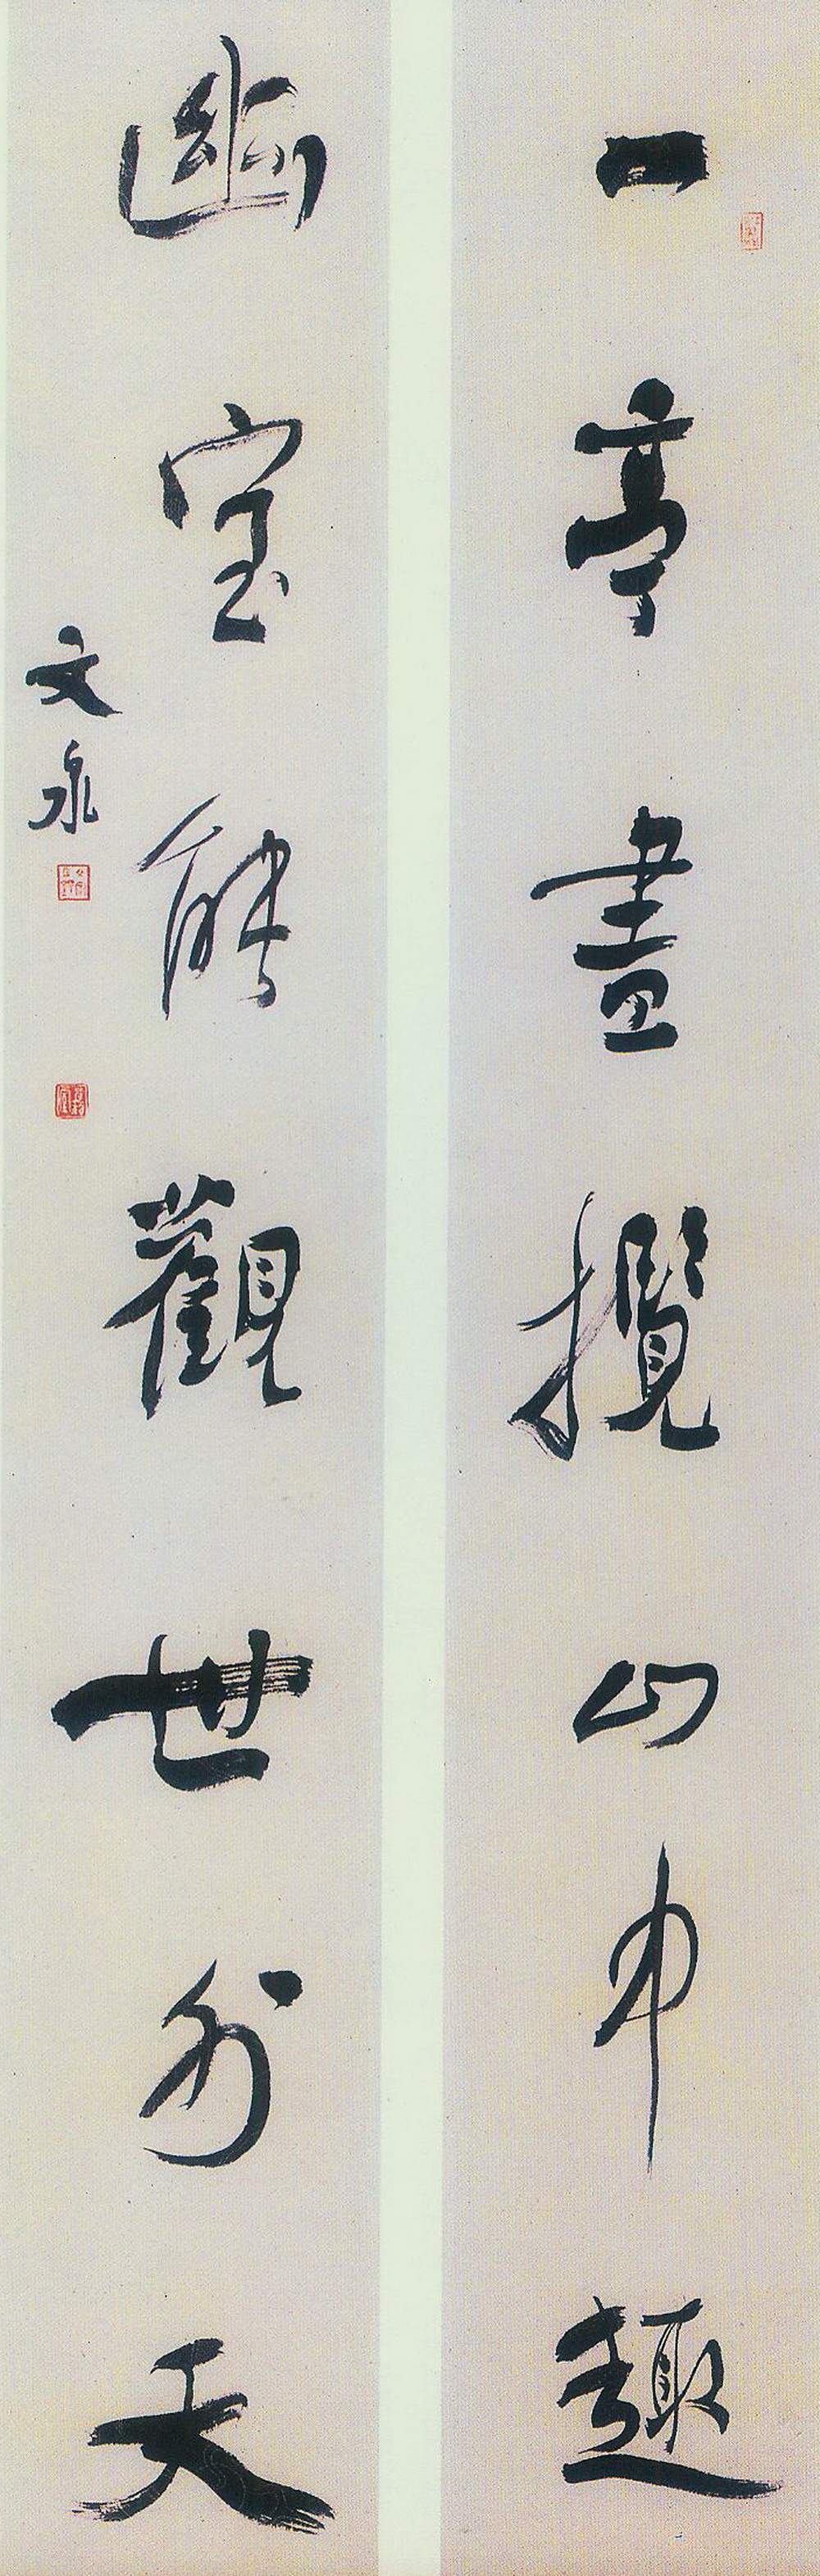 一亭盡攬山中趣
幽室能觀世外天
文泉